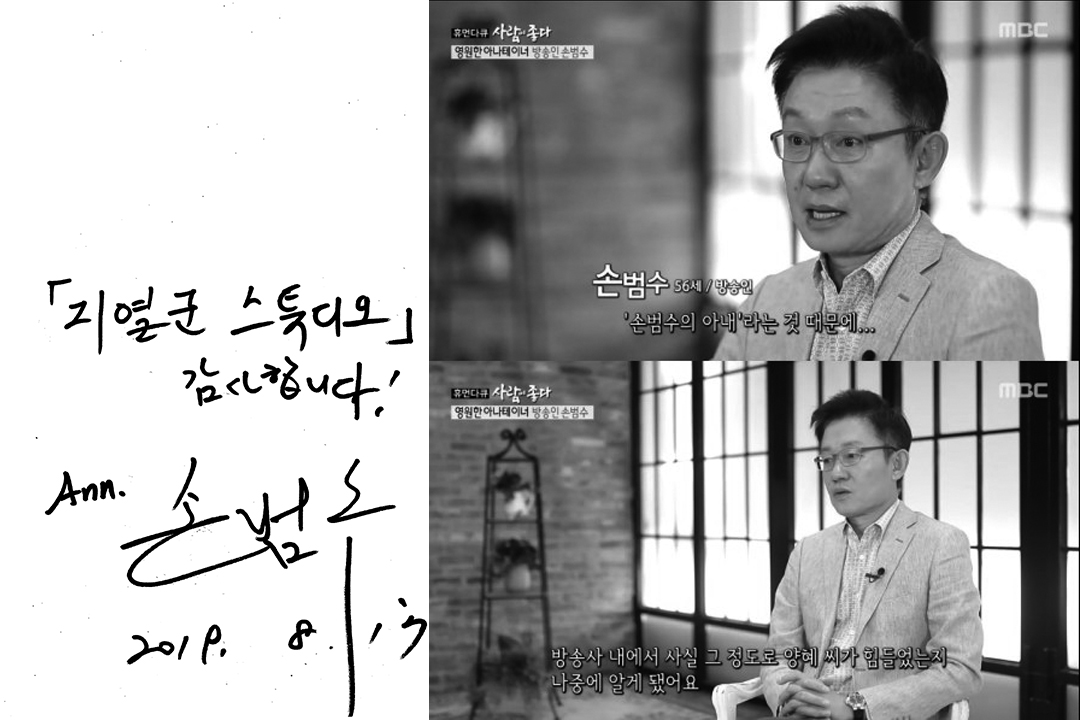 「지열군 스튜디오」
감사합니다!
Ann. 손범수
2019. 8.
휴먼다큐 사람이 좋다
영원한 아나테이너 방송인 손범수
MBC
손범수 56세 / 방송인
'손범수의 아내'라는 것 때문에...
휴먼다큐 사람이 좋다
영원한 아나테이너 방송인 손범수
MBC
방송사 내에서 사실 그 정도로 양혜 씨가 힘들었는지
나중에 알게 됐어요